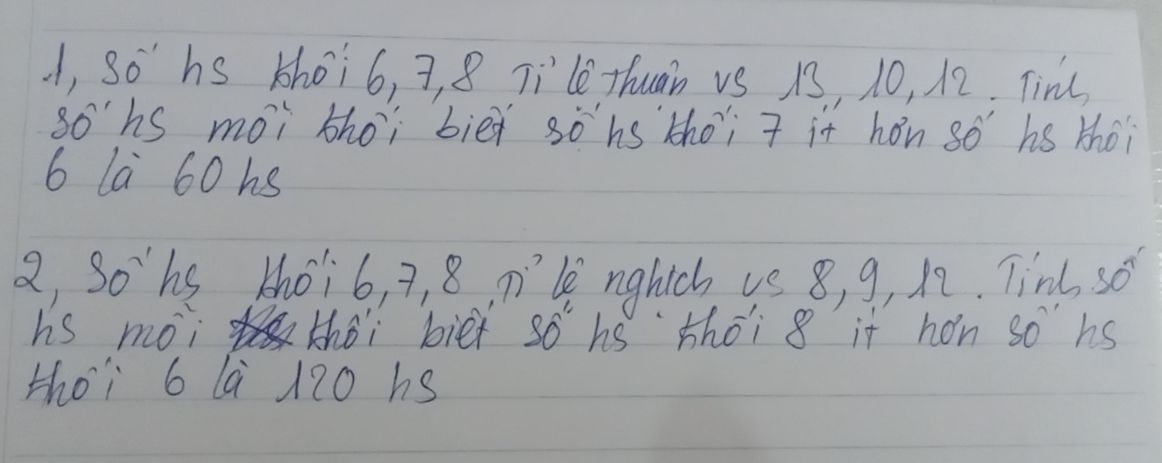 1, Số hs khối 6, 7, 8 Tỉ lệ Thuận vs 13, 10, 12. Tính
số hs mỗi khối biết số hs khối 7 ít hơn số hs khối
6 là 60 hs
2, Số hs khối 6, 7, 8 Tỉ lệ nghịch vs 8, 9, 12. Tính số
hs mỗi khối biết số hs khối 8 ít hơn số hs
khối 6 là 120 hs